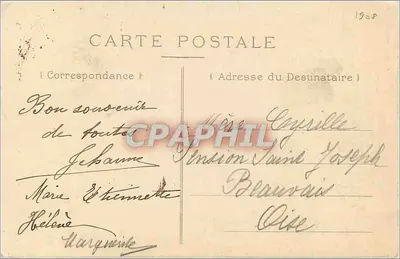 1908
CARTE POSTALE
( Correspondance )
( Adresse du Destinataire )
Bon souvenir
de toutes
Jehanne
Marie Etiennette
Hélène
Marguerite
Mère Cyrille
Pension Saint Joseph
Beauvais
Oise
CPAPHIL